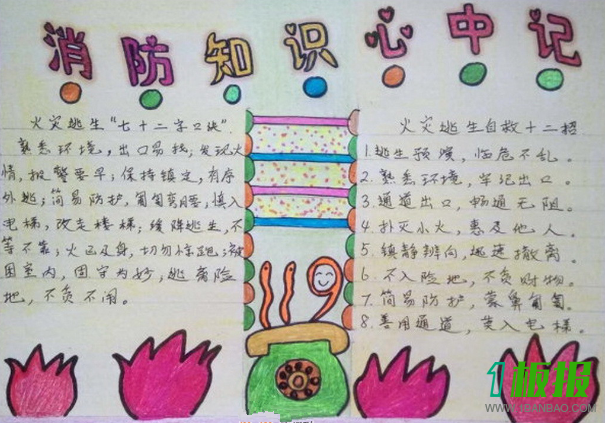 消防知识心中记
火灾逃生“七十二字口诀”.
熟悉环境，出口易找；发现火
情，报警要早；保持镇定，有序
外逃；简易防护，匍匐弯腰；慎入
电梯，改走楼梯；缓降逃生，不
等不靠；火已及身，切勿惊跑；被
困室内，固守为妙；逃离险
地，不负不闹。
119
火灾逃生自救十二招
1.逃生预演，临危不乱。
2.熟悉环境，牢记出口。
3.通道出口，畅通无阻。
4.扑灭小火，惠及他人。
5.镇静辨向，迅速撤离。
6.不入险地，不贪财物。
7.简易防护，蒙鼻匍匐。
8.善用通道，莫入电梯。
1板报
WWW.1BANBAO.COM